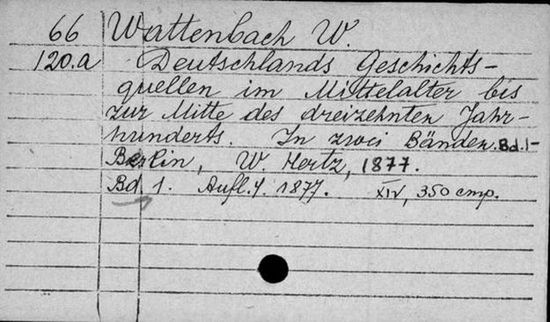 66 Wattenbach W.
120.a Deutschlands Geschichts-
quellen im Mittelalter bis
zur Mitte des dreizehnten Jahr-
hunderts. In zwei Bänden. Bd.1-
Berlin, W. Hertz, 1877.
Bd. 1. Aufl.4. 1877. XIV, 350 cmp.